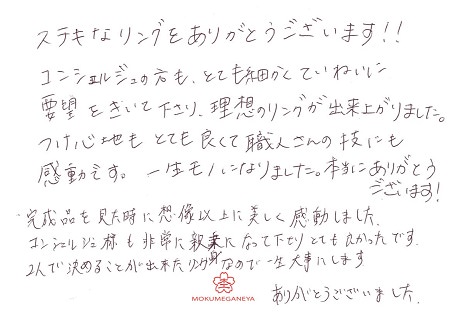 ステキなリングをありがとうございます!!
コンシェルジュの方も、とても細かくていねいに
要望をきいて下さり、理想のリングが出来上がりました。
つけ心地もとても良くて職人さんの技にも
感動です。一生モノになりました。本当にありがとう
ございます!
完成品を見た時に想像以上に美しく感動しました。
コンシェルジュ様も非常に親身になって下さりとても良かったです。
2人で決めることが出来たリングなので一生大事にします
ありがとうございました。
MOKUMEGANEYA